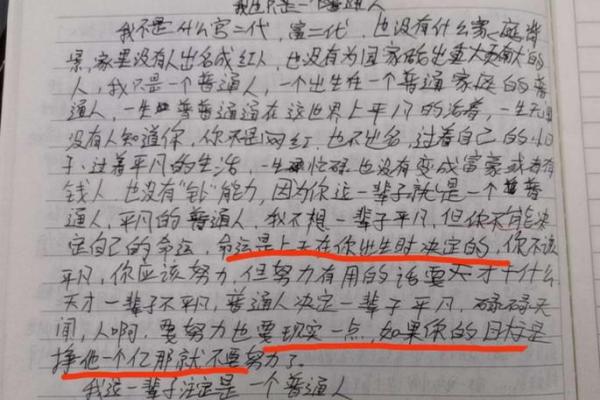 我也只是一个普通人
我不是什么官二代，富二代，也没有什么家庭背
景，家里没有人出名成红人，也没有为国家砳出重大贡献的
人，我只是一个普通人，一个出生在一个普通家庭的普
通人，一生普普通通在这世界上平凡的活着，一生无
没有人知道你，你不是网红，也不出名，过着自己的小日
子，过着平凡的生活，一生忙碌也没有变成富豪或者有
钱人，也没有"钞"能力，因为你这一辈子就是一个普
通人，平凡的普通人，我不想一辈子平凡，但你不能决
定自己的命运，命运是上天在你出生时决定的，你不该
平凡，你应该努力，但努力有用的话要天才干什么
天才一辈子不平凡，普通人决定一辈子平凡，碌碌无
闻，人啊，要努力也要现实一点，如果你的目标是
挣他一个亿那就不要努力了。
我这一辈子注定是一个普通人